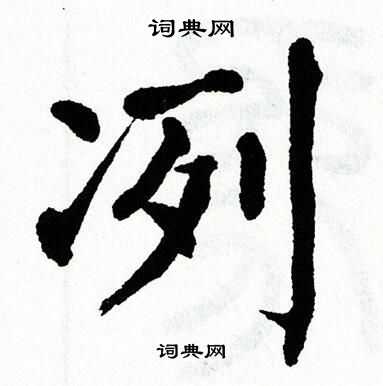 词典网
冽
词典网